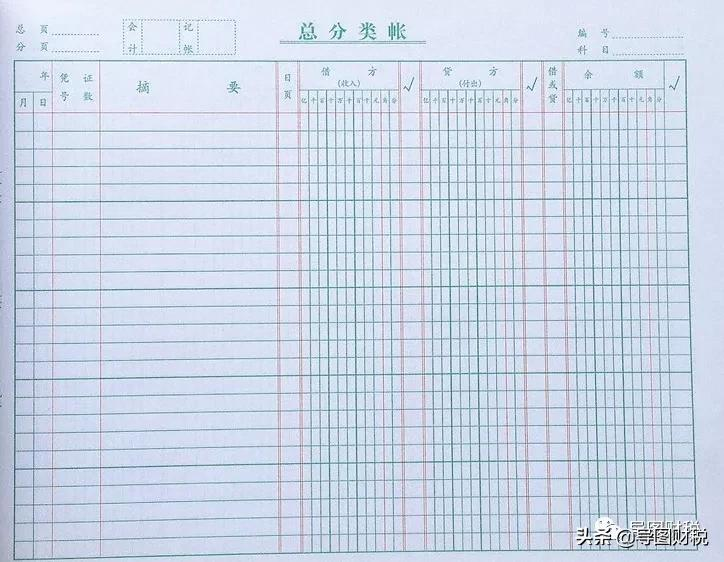 总 页 会 记 总分类帐 编 号
分 页 计 帐 科 目
年 凭 证 摘 要 日 借 方 √ 贷 方 √ 借 余 额 √
月 日 号 数 页 (收入) (付出) 或 贷
亿 千 百 十 万 千 百 十 元 角 分 亿 千 百 十 万 千 百 十 元 角 分 亿 千 百 十 万 千 百 十 元 角 分
导图财税
头条 @导图财税